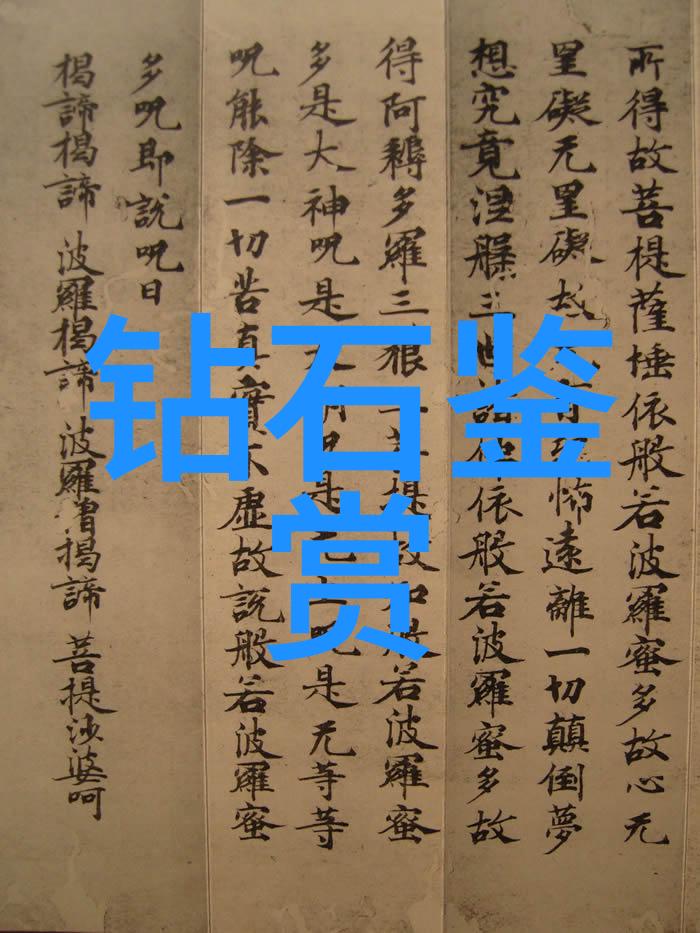 所得故菩提薩埵依般若波羅蜜多故心无
罣礙无罣礙故有恐怖遠離一切顛倒夢
想究竟涅槃三世諸佛依般若波羅蜜多故
得阿耨多羅三藐三菩提故知般若波羅蜜
多是大神呪是大明呪是无上呪是无等等
呪能除一切苦真實不虛故說般若波羅蜜
多呪即說呪曰
揭諦揭諦 波羅揭諦 波羅僧揭諦 菩提沙婆呵
钻石鉴
赏